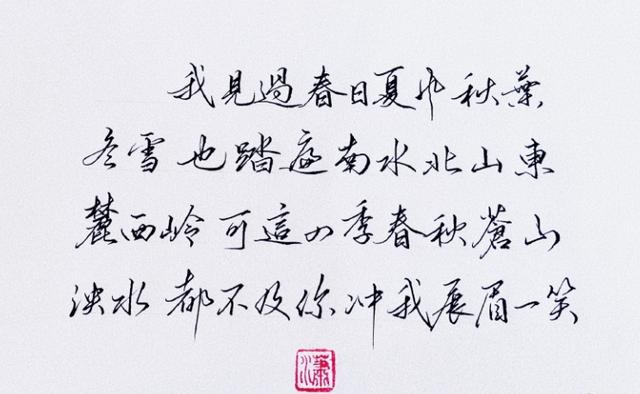 我見過春日夏风秋葉
冬雪也踏遍南水北山東
麓西岭可這四季春秋蒼山
泱水都不及你冲我展眉一笑
瀟